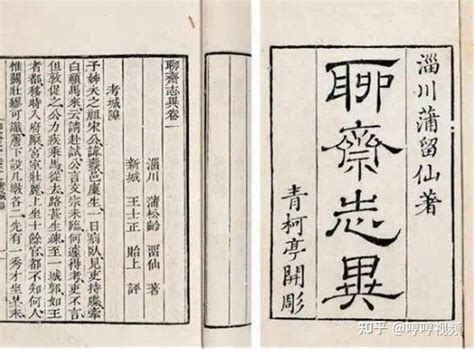 淄川蒲留仙著
聊齋志異
青柯亭開彫
聊齋志異卷一
淄川 蒲松齡 畱仙 著
新城 王士正 貽上 評
考城隍
子姊夫之祖宋公諱燾邑廩生一日病臥見吏持牒牽
白顛馬來云請赴試公言文宗未臨何遽得考吏不言
但敦促之公力疾乘馬從去路甚生疎至一城郭如王
者都移時入府廨宮室壯麗上坐十餘官都不知何人
惟關壯繆可識簷下設几墩各二先有一秀才坐其末
知乎 @哼哼视频